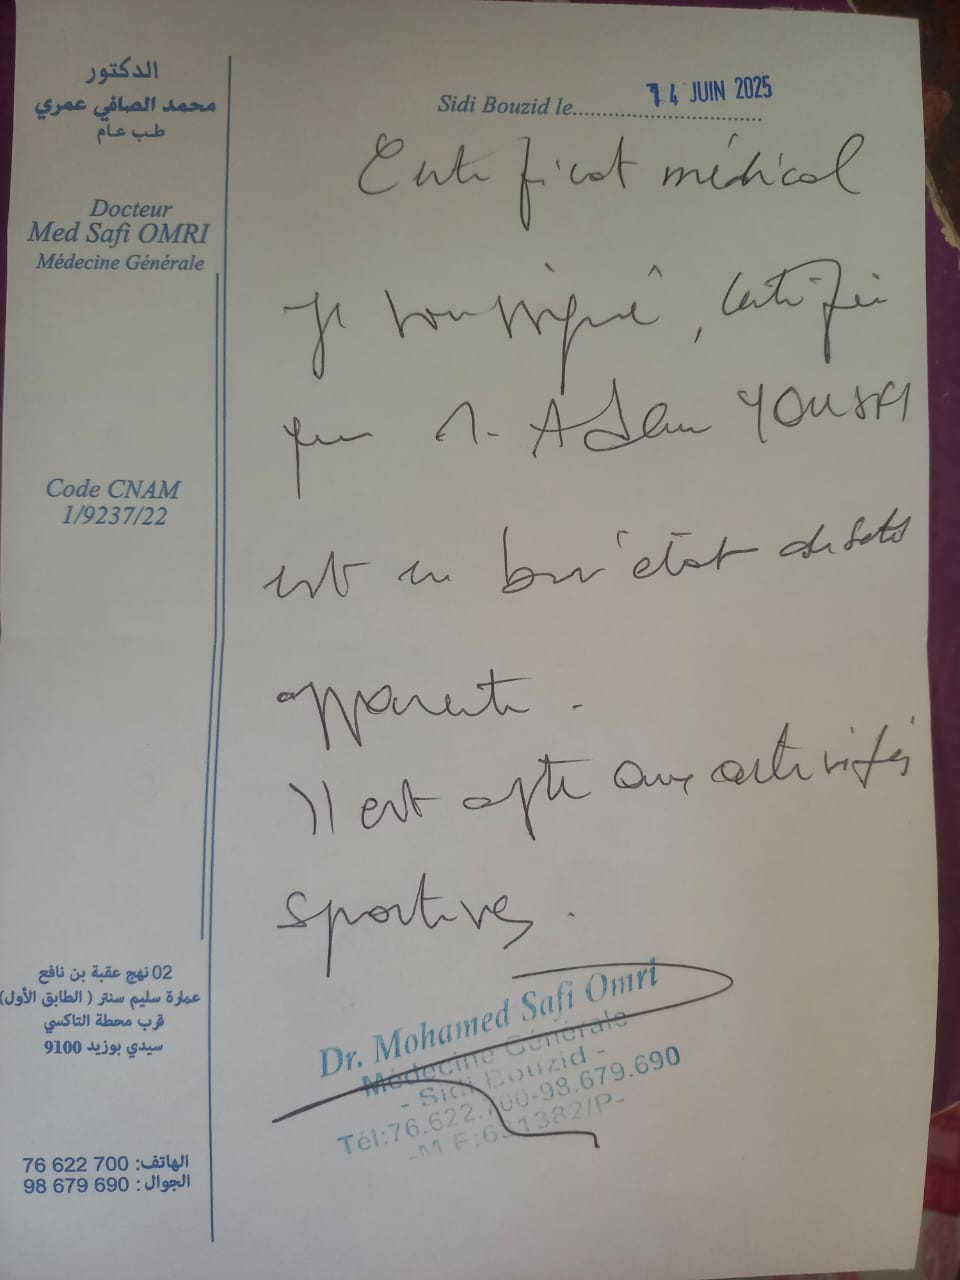 الدكتور
محمد الصافي عمري
طب عام
Docteur
Med Safi OMRI
Médecine Générale
Code CNAM
1/9237/22
02 نهج عقبة بن نافع
عمارة سليم سنتر ( الطابق الأول)
قرب محطة التاكسي
سيدي بوزيد 9100
الهاتف: 76 622 700
الجوال : 98 679 690
Sidi Bouzid le.......... 14 JUIN 2025
Certificat médical
Je soussigné, certifie
que M. Adam YOUSFI
est en bon état de santé
apparente.
Il est apte aux activités
sportives.
Dr. Mohamed Safi Omri
Médecine Générale
- Sidi Bouzid -
Tél:76.622.700-98.679.690